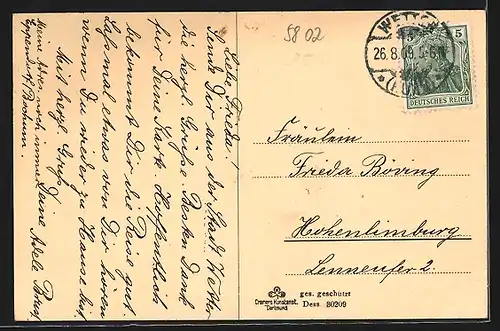 Liebe Frieda!
Sende Dir aus der Stadt Wetter
die herzl. Grüße. Besten Dank
für Deine Karte. Hoffentlich
bekommt Dir die Reise gut.
Lass mal etwas von Dir hören
wenn Du wieder zu Hause bist
Mit herzl. Gruß
Deine Adele
Meine Adres. noch immer
Bochum.
5802
WETTER
26.8.08. 5-6 N
(RUHR)
5
DEUTSCHES REICH
Fräulein
Frieda Böving
Hohenlimburg
Lenneufer 2.
Cramers Kunstanst.
Dortmund
ges. geschützt
Dess. 30209